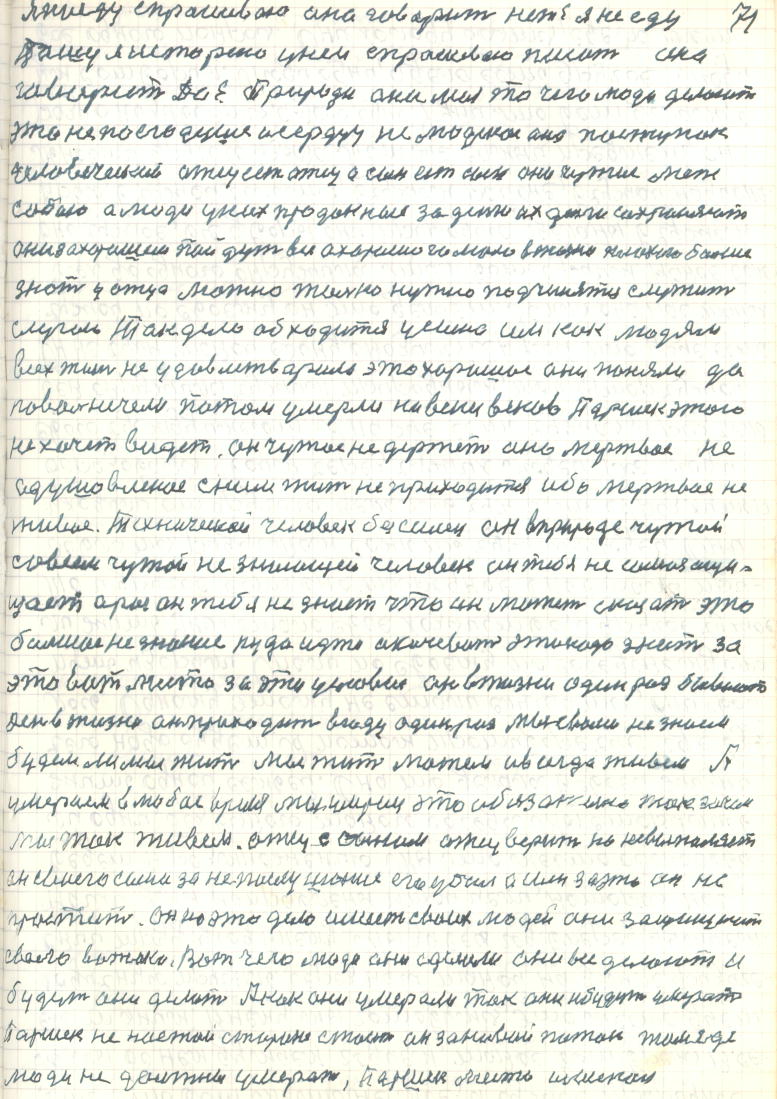 я приеду спрашеваю она говорит нет я не еду 71
Пишу я историю у ней спрашеваю писат она
говорит Да. Природа они мол то чего люди делают
это не последущие и сердцу не людское ана поступок
человеческий отец ест отец а сын ест сын они чужие меж
собою а люди у них проданные за денги их денги сохраняют
они за хорошем пойдут все а хорошого мало в жизни плохого болше
знат у отца можно толко нужно подчинятся служит
служит Так дело обходится у сына им как людям
всех жит не удовлетварило это хорошое они поняли да
поволничели потом умерли на веки веков Паршек этого
не хочет видет. он чужое не держет оно мертвое не
одушовленое с ним жит не приходится ибо мертвое не
живое. Технический человек безсилен он в природе чужой
совсем чужой не знающей человек он тебя не самозащи-
щает а раз он тебя не знает что он может сказат это
болшое незнание куда идти а кочеват это надо знат за
это вот место за эти условия он в жизни один раз бывает
ден в жизни он приходит в году один раз мы с вами не знаем
будем ли мы жит мы жит можем и всегда живем А
умераем в любое время мы умрем это обязателно так зачем
мы так живем. отец с сыном отец верит но невыполняет
он своего сына за непослушание его убил а сын за это он не
простит. Он на это дело имеет своих людей они защищают
своего вожака. Вот чего люди они сделали они все делают и
будут они делат А как они умерали так они и будут умерат
Паршек не на етой стороне стоит он за новый поток там где
люди не должны умерат, Паршек место искал